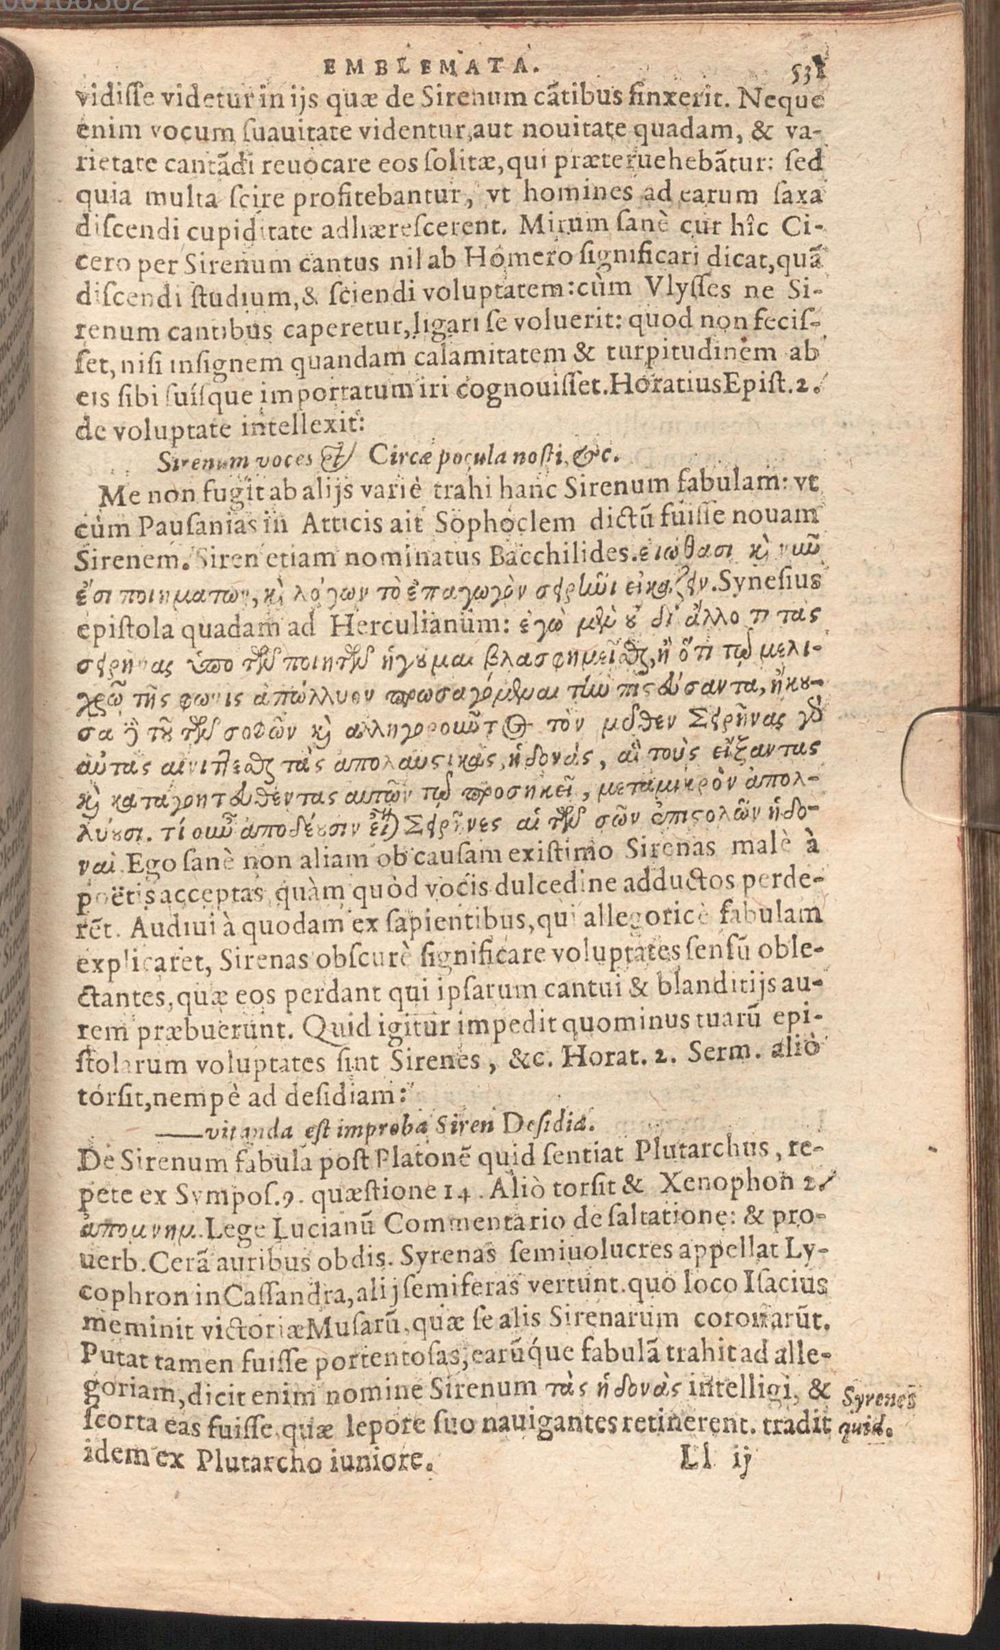 EMBLEMATA. 531
vidisse videtur in ijs quæ de Sirenum cãtibus finxerit. Neque
enim vocum suauitate videntur, aut nouitate quadam, & va-
rietate cantãdi reuocare eos solitæ, qui præteruehebãtur: sed
quia multa scire profitebantur, vt homines ad earum saxa
discendi cupiditate adhærescerent. Mirum sanè cur hîc Ci-
cero per Sirenum cantus nil ab Homero significari dicat, quã
discendi studium, & sciendi voluptatem: cùm Vlysses ne Si-
renum cantibus caperetur, ligari se voluerit: quod non fecis-
set, nisi insignem quandam calamitatem & turpitudinem ab
eis sibi suísque importatum iri cognouisset. Horatius Epist. 2.
de voluptate intellexit:
Sirenum voces & Circæ pocula nosti, &c.
Me non fugit ab alijs variè trahi hanc Sirenum fabulam: vt
cùm Pausanias in Atticis ait Sophoclem dictũ fuisse nouam
Sirenem. Siren etiam nominatus Bacchilides. εἰώθασι καὶ νυῦ
ἔσι ποιημάτων, καὶ λόγων τὸ ἐπαγωγὸν σειρῆνι εἰκάζειν. Synesius
epistola quadam ad Herculianum: ἐγὼ μὲν οὐ δι' ἄλλο τι τὰς
σειρῆνας ὑπὸ τῶν ποιητῶν ἡγοῦμαι βλασφημεῖσθαι, ἢ ὅτι τῷ μελι-
χρῷ τῆς φωνῆς ἀπώλλυον προσαγόμεναι τὴν πιστεύσαντα, ἤκου-
σα δὲ τοῦ τῶν σοφῶν καὶ ἀλληγοροῦντος τὸν μῦθεν Σειρῆνας γὰρ
αὐτὰς αἰνίττεσθαι τὰς ἀπολαυστικὰς, ἡδονάς, αἳ τοὺς εἴξαντας
καὶ καταγοητευθέντας αὐτῶν τῷ προσηνεῖ, μεταμικρὸν ἀπολ-
λύουσι. τί οὖν ἀποδέουσιν εἶναι Σειρῆνες αἱ τῶν σῶν ἐπιστολῶν ἡδο-
ναί. Ego sanè non aliam ob causam existimo Sirenas malè à
poëtis acceptas, quàm quòd vocis dulcedine adductos perde-
rẽt. Audiui à quodam ex sapientibus, qui allegoricè fabulam
explicaret, Sirenas obscurè significare voluptates sensũ oble-
ctantes, quæ eos perdant qui ipsarum cantui & blanditijs au-
rem præbuerunt. Quid igitur impedit quominus tuarũ epi-
stolarum voluptates sint Sirenes, &c. Horat. 2. Serm. aliò
torsit, nempè ad desidiam:
—vitanda est improba Siren Desidia.
De Sirenum fabula post Platonẽ quid sentiat Plutarchus, re-
pete ex Sympos. 9. quæstione 14. Aliò torsit & Xenophon 2.
ἀπομνημ. Lege Lucianũ Commentario de saltatione: & pro-
uerb. Cerã auribus obdis. Syrenas semiuolucres appellat Ly-
cophron in Cassandra, alij semiferas vertunt. quo loco Isacius
meminit victoriæ Musarũ, quæ se alis Sirenarum coronarũt.
Putat tamen fuisse portentosas, earúque fabulã trahit ad alle-
goriam, dicit enim nomine Sirenum τὰς ἡδονὰς intelligi, &
scorta eas fuisse, quæ lepore suo nauigantes retinerent. tradit
idem ex Plutarcho iuniore.
Syrenes
quid.
Ll ij